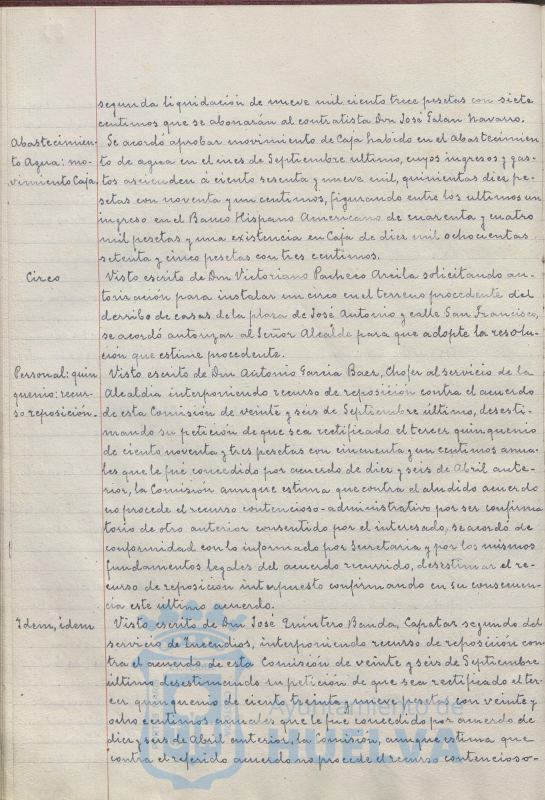 segunda liquidación de nueve mil ciento trece pesetas con siete
centimos que se abonarán al contratista Don José Galan Navarro.
Abastecimien-
to Agua: mo-
vimiento Caja.
Se acordó aprobar movimiento de Caja habido en el Abastecimien
to de agua en el mes de Septiembre ultimo, cuyos ingresos y gas-
tos ascienden á ciento sesenta y nueve mil, quinientas diez pe-
setas con noventa y un centimos, figurando entre los ultimos un
ingreso en el Banco Hispano Americano de cuarenta y cuatro
mil pesetas y una existencia en Caja de diez mil ochocientas
setenta y cinco pesetas con tres centimos.
Circo
Visto escrito de Don Victoriano Pacheco Arcila solicitando au-
torización para instalar un circo en el terreno procedente del
derribo de casas de la plaza de José Antonio y calle San Francisco,
se acordó autorizar al Señor Alcalde para que adopte la resolu-
ción que estime procedente.
Personal: quin
quenio: recur-
so reposición.
Visto escrito de Don Antonio Garcia Baez, Chofer al servicio de la
Alcaldia interponiendo recurso de reposición contra el acuerdo
de esta Comisión de veinte y seis de Septiembre último, desesti-
mando su petición de que sea rectificado el tercer quinquenio
de ciento noventa y tres pesetas con cincuenta y un centimos anua-
les que le fué concedido por acuerdo de diez y seis de Abril ante-
rior, la Comisión aunque estima que contra el aludido acuerdo
no procede el recurso contencioso-administrativo por ser confirma
torio de otro anterior consentido por el interesado, se acordó de
conformidad con lo informado por Secretaria y por los mismos
fundamentos legales del acuerdo recurrido, desestimar el re-
curso de reposición interpuesto confirmando en su consecuen-
cia este ultimo acuerdo.
Idem, idem
Visto escrito de Don José Quintero Banda, Capataz segundo del
servicio de Incendios, interponiendo recurso de reposición con
tra el acuerdo de esta Comisión de veinte y seis de Septiembre
último desestimando su petición de que sea rectificado el ter-
cer quinquenio de ciento treinta y nueve pesetas con veinte y
ocho centimos, anuales que le fue concedido por acuerdo de
diez y seis de Abril anterior, la Comisión, aunque estima que
contra el referido acuerdo no procede el recurso contencioso-
Ayuntamiento de
HUELVA